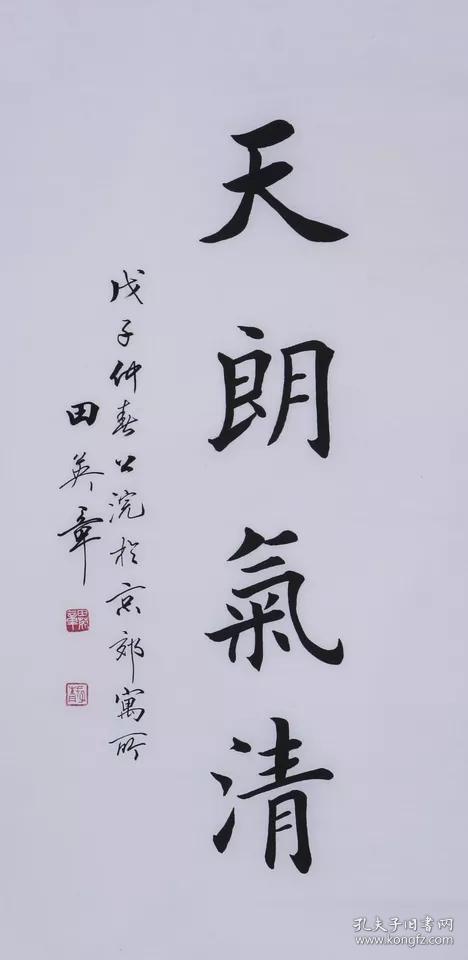 天朗氣清
戊子仲春浣於京郊寓所
田英章
孔夫子旧书网
www.kongfz.com